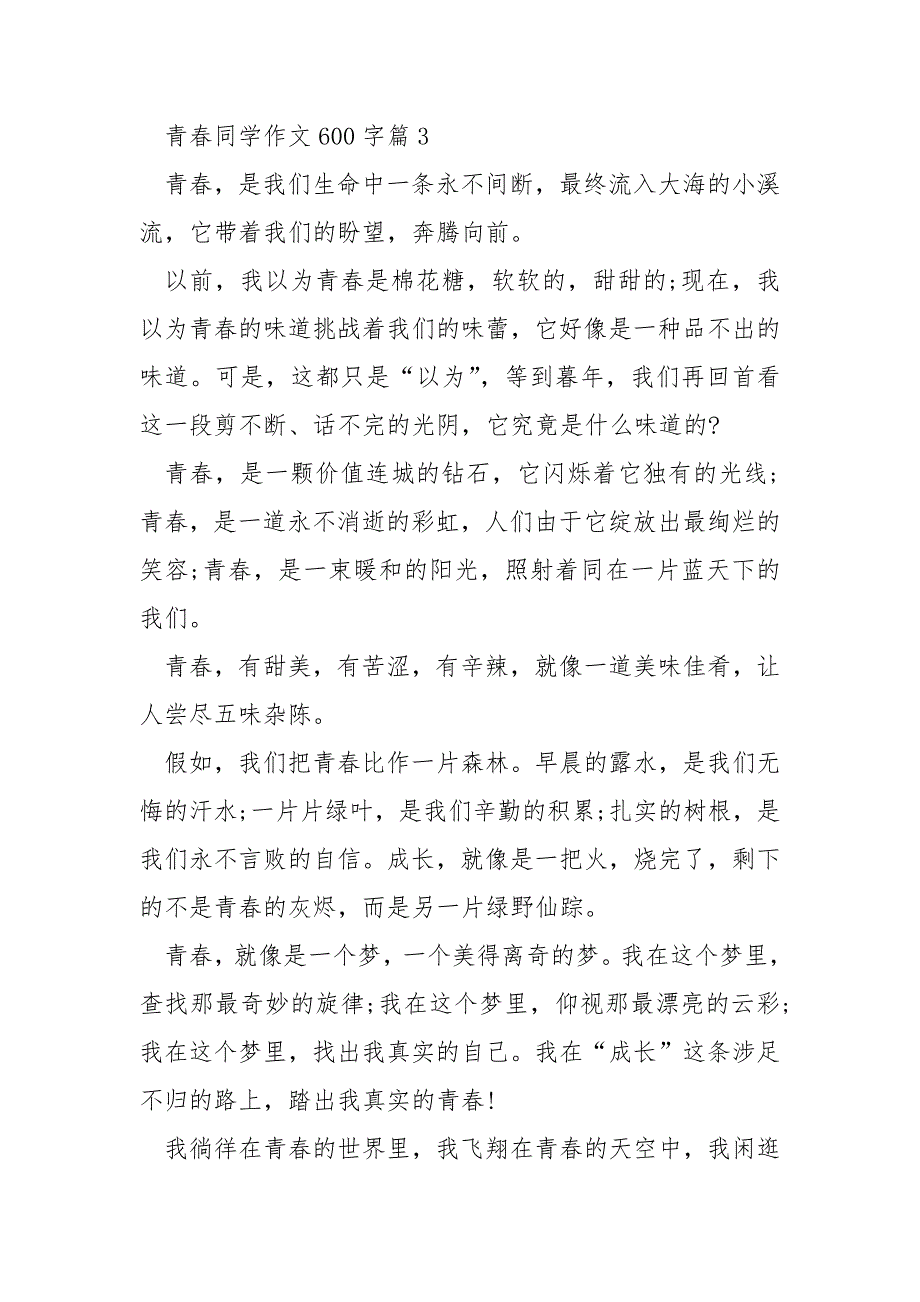 青春同学作文 600 字篇 3
青春，是我们生命中一条永不间断，最终流入大海的小溪
流，它带着我们的盼望，奔腾向前。
以前，我以为青春是棉花糖，软软的，甜甜的;现在，我
以为青春的味道挑战着我们的味蕾，它好像是一种品不出的
味道。可是，这都只是“以为”，等到暮年，我们再回首看
这一段剪不断、话不完的光阴，它究竟是什么味道的?
青春，是一颗价值连城的钻石，它闪烁着它独有的光线;
青春，是一道永不消逝的彩虹，人们由于它绽放出最绚烂的
笑容;青春，是一束暖和的阳光，照射着同在一片蓝天下的
我们。
青春，有甜美，有苦涩，有辛辣，就像一道美味佳肴，让
人尝尽五味杂陈。
假如，我们把青春比作一片森林。早晨的露水，是我们无
悔的汗水;一片片绿叶，是我们辛勤的积累;扎实的树根，是
我们永不言败的自信。成长，就像是一把火，烧完了，剩下
的不是青春的灰烬，而是另一片绿野仙踪。
青春，就像是一个梦，一个美得离奇的梦。我在这个梦里，
查找那最奇妙的旋律;我在这个梦里，仰视那最漂亮的云彩;
我在这个梦里，找出我真实的自己。我在“成长”这条涉足
不归的路上，踏出我真实的青春!
我徜徉在青春的世界里，我飞翔在青春的天空中，我闲逛